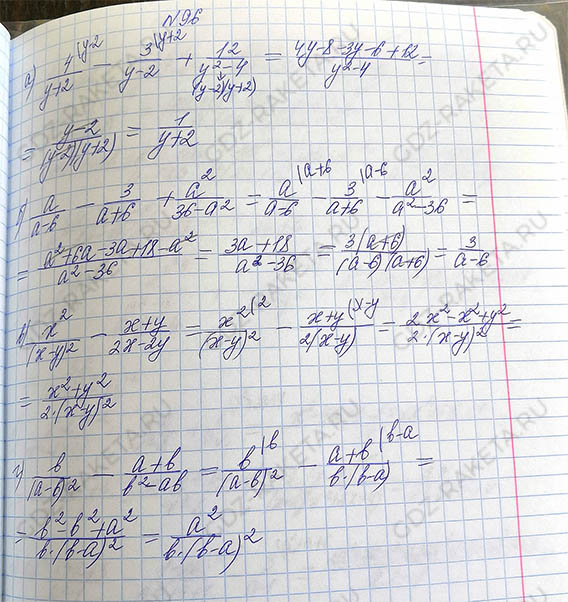 №96
а) 4/(y+2) |y-2 - 3/(y-2) |y+2 + 12/(y²-4) = (4y-8-3y-6+12)/(y²-4) =
(y-2)(y+2)
= (y-2)/((y-2)(y+2)) = 1/(y+2)
б) a/(a-6) - 3/(a+6) + a²/(36-a²) = a/(a-6) |a+6 - 3/(a+6) |a-6 - a²/(a²-36) =
= (a²+6a-3a+18-a²)/(a²-36) = (3a+18)/(a²-36) = 3(a+6)/((a-6)(a+6)) = 3/(a-6)
в) x²/(x-y)² - (x+y)/(2x-2y) = x²/(x-y)² |2 - (x+y)/(2(x-y)) |x-y = (2x²-x²+y²)/(2·(x-y)²) =
= (x²+y²)/(2·(x-y)²)
г) b/(a-b)² - (a+b)/(b²-ab) = b/(a-b)² |b - (a+b)/(b·(b-a)) |b-a =
= (b²-b²+a²)/(b·(b-a)²) = a²/(b·(b-a)²)
GDZ-RAKETA.RU